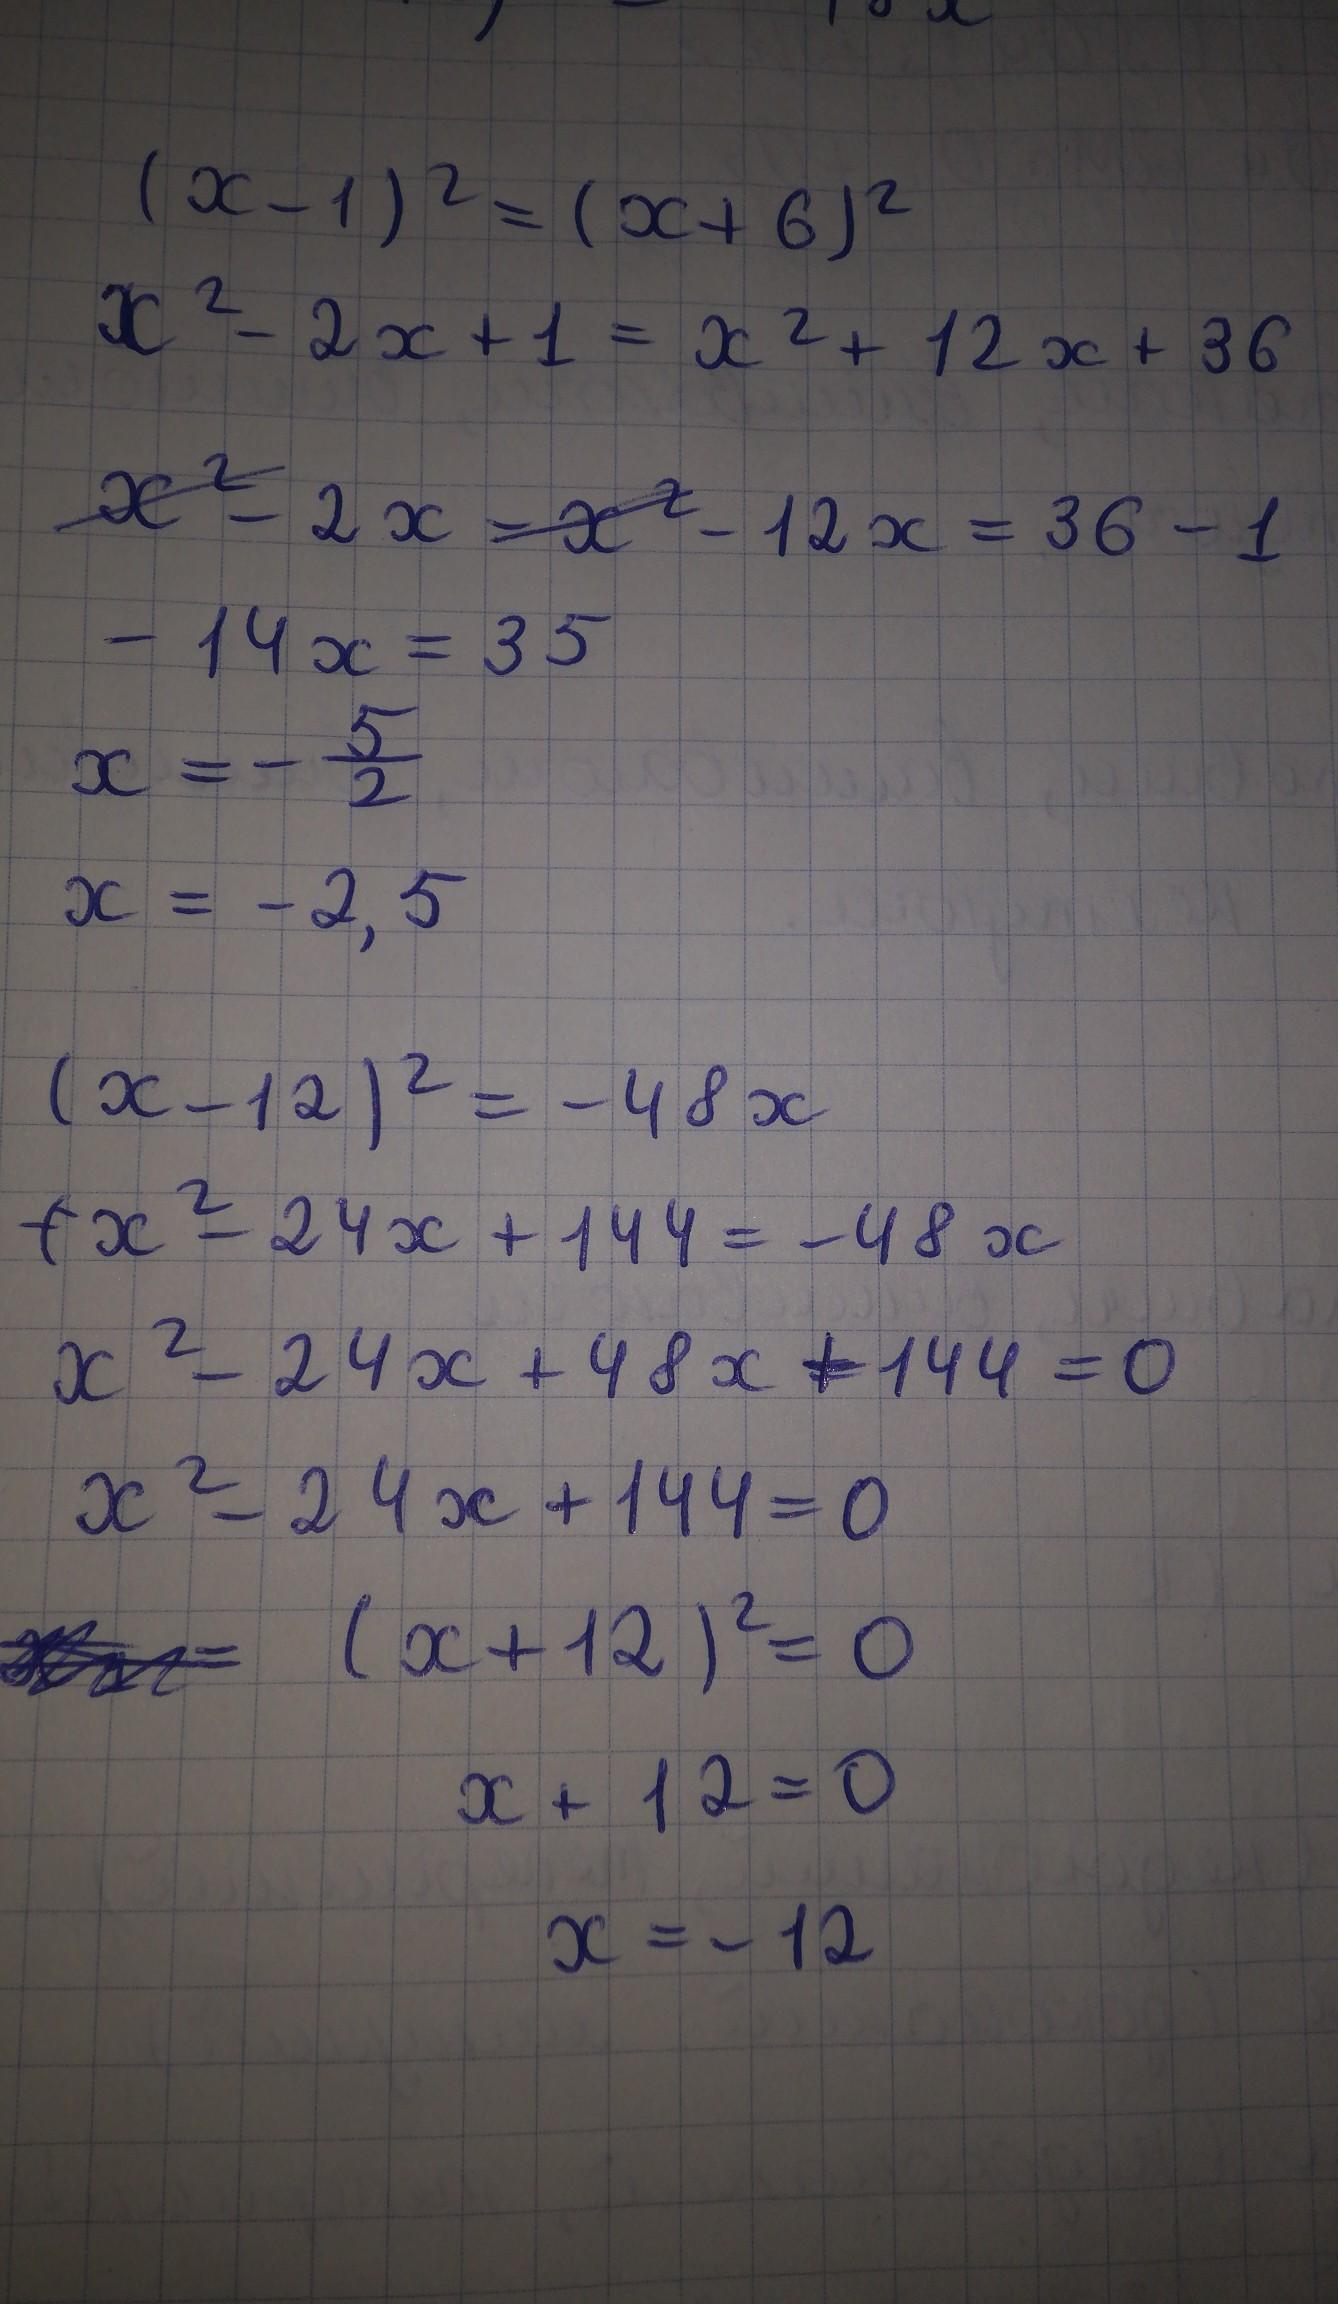 (x-1)²=(x+6)²
x²-2x+1=x²+12x+36
x²-2x=x²-12x=36-1
-14x=35
x=-5/2
x=-2,5
(x-12)²=-48x
x²-24x+144=-48x
x²-24x+48x+144=0
x²-24x+144=0
= (x+12)²=0
x+12=0
x=-12